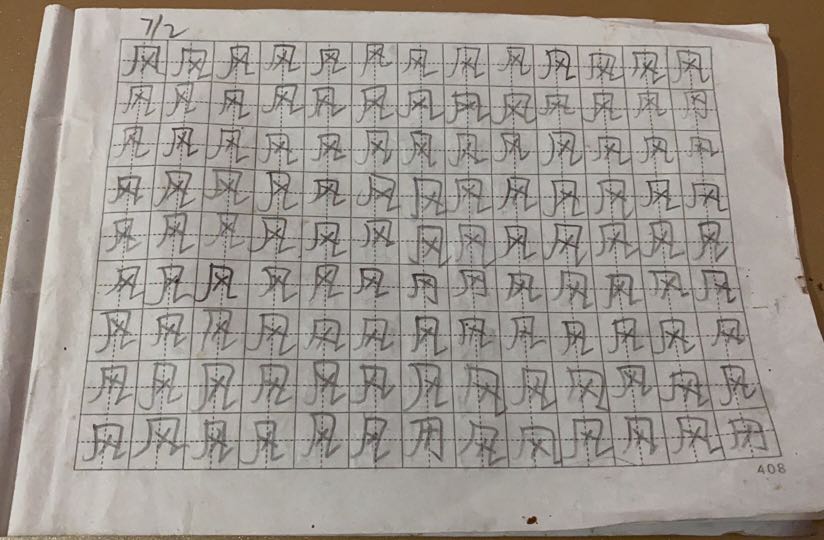 7/2
风风风风风风风风风风风风风
风风风风风风风风风风风风风
风风风风风风风风风风风风风
风风风风风风风风风风风风风
风风风风风风风风风风风风风
风风风风风风风风风风风风风
风风风风风风风风风风风风风
风风风风风风风风风风风风风
风风风风风风风风风风风风风
408